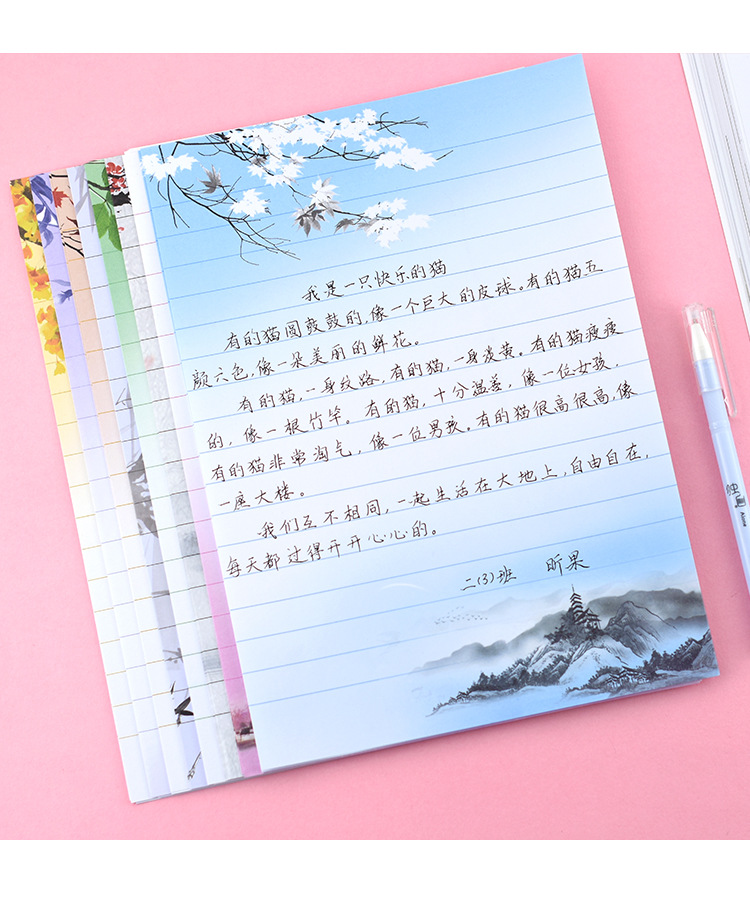 我是一只快乐的猫
有的猫圆鼓鼓的,像一个巨大的皮球。有的猫五
颜六色,像一朵美丽的鲜花。
有的猫,一身纹路,有的猫,一身淡黄。有的猫瘦瘦
的,像一根竹竿。有的猫,十分温差,像一位女孩,
有的猫非常淘气,像一位男孩。有的猫很高很高,像
一座大楼。
我们互不相同,一起生活在大地上,自由自在,
每天都过得开开心心的。
二(3)班 昕果